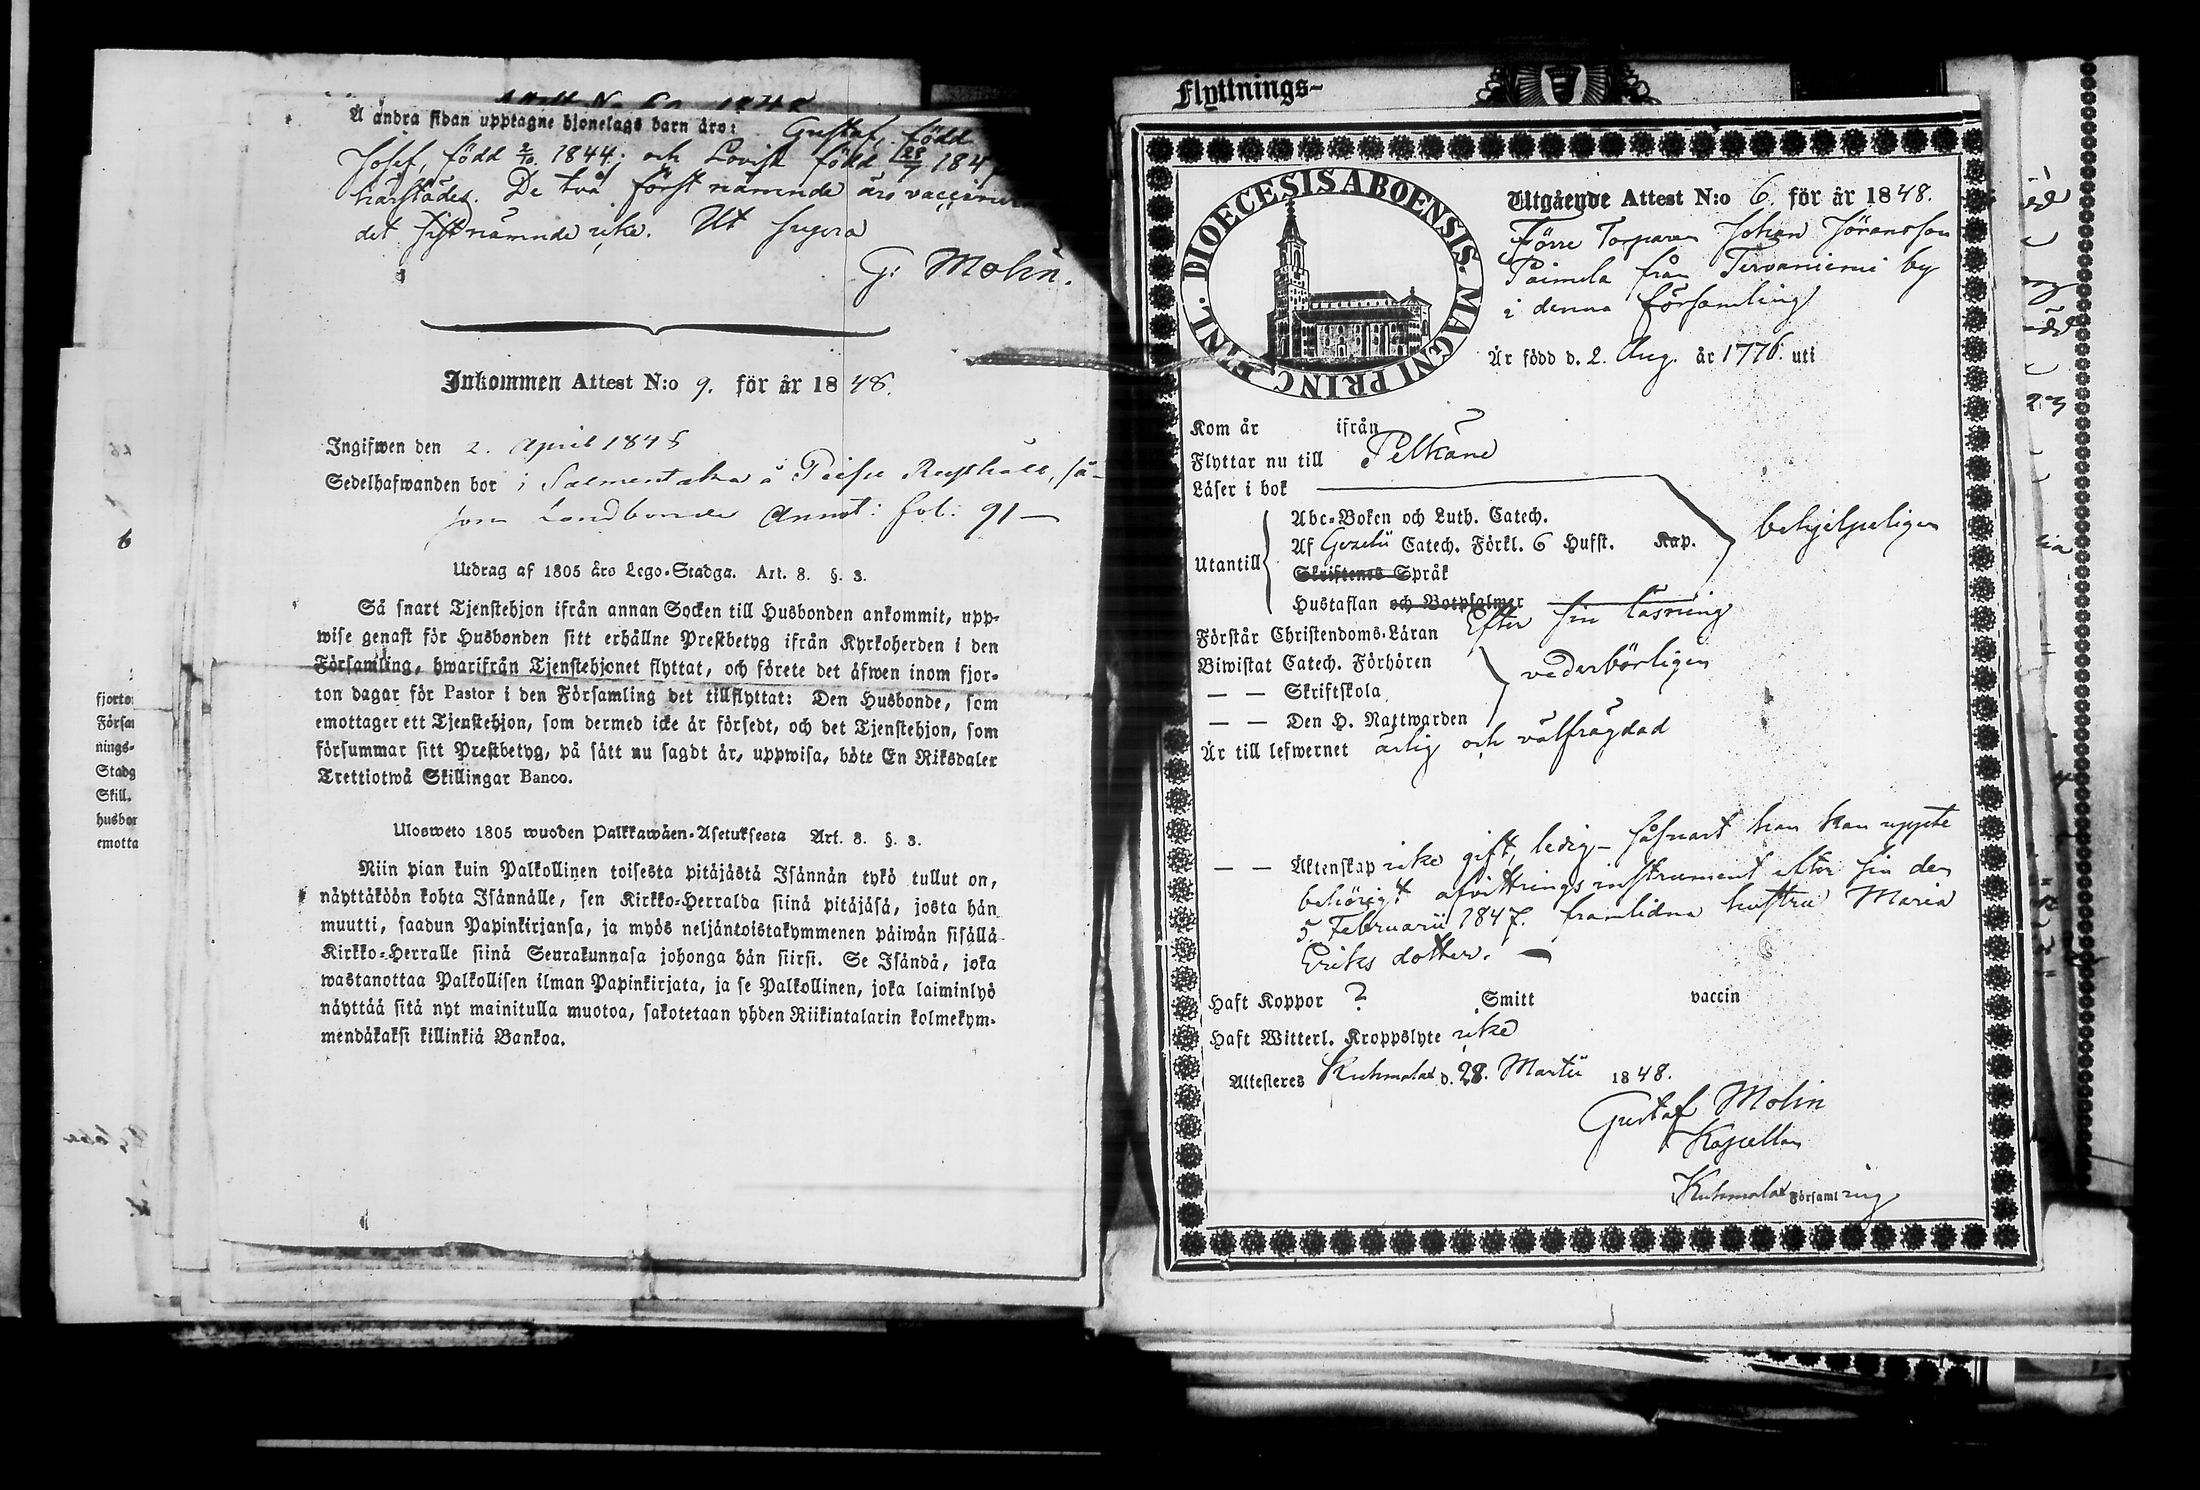 Å andra sidan upptagne hjonelags barn äro: Gustaf, född
Josef, född 2/10 1844; och Lovisa född 28/7 1847
härstädes. De två först nämnde äro vaccinerade
det sistnämnde icke. Ut supra
G: Molin.
Inkommen Attest N:o 9. för år 1848.
Ingifwen den 2. April 1848
Sedelhafwanden bor i Salmentaka å Rusthåll, så-
som Landbonde Annot: fol: 91 —
Utdrag af 1805 års Lego-Stadga. Art. 8. §. 3.
Så snart Tjenstehjon ifrån annan Socken till Husbonden ankommit, upp-
wise genast för Husbonden sitt erhållne Prestbetyg ifrån Kyrkoherden i den
Församling, hwarifrån Tjenstehjonet flyttat, och förete det äfwen inom fjor-
ton dagar för Pastor i den Församling det tillflyttat: Den Husbonde, som
emottager ett Tjenstehjon, som dermed icke är försedt, och det Tjenstehjon, som
försummar sitt Prestbetyg, på sätt nu sagdt är, uppwisa, böte En Riksdaler
Trettiotwå Skillingar Banco.
Ulosweto 1805 wuoden Palkkawäen-Asetuksesta Art. 8. §. 3.
Niin pian kuin Palkollinen toisesta pitäjästä Isännän tykö tullut on,
näyttäköön kohta Isännälle, sen Kirkko-Herralda siinä pitäjäsä, josta hän
muutti, saadun Papinkirjansa, ja myös neljäntoistakymmenen päiwän sisällä
Kirkko-Herralle siinä Seurakunnasa johonga hän siirsi. Se Isändä, joka
wastanottaa Palkollisen ilman Papinkirjata, ja se Palkollinen, joka laiminlyö
näyttää sitä nyt mainitulla muotoa, sakotetaan yhden Riikintalarin kolmekym-
mendäkaksi killinkiä Bankoa.
fjorto
Försa
nings-
Stadg
Skill.
husbor
emotta
Flyttnings-
DIOECESIS ABOENSIS. MAGNI PRINC. FINL.
Utgående Attest N:o 6. för år 1848.
Förre Torparen Johan Göransson
Paimela från Tervaniemi by
i denna församling
Är född d. 2. Aug. år 1776. uti
Kom år ifrån
Flyttar nu till Pelkäne
Läser i bok
Utantill
Abc-Boken och Luth. Catech.
Af Gezelii Catech. Förkl. 6 Hufst. Kap.
Skriftenes Språk
Hustaflan och Botpsalmer
behjelpeligen
Förstår Christendoms-Läran Efter sin läsning
Biwistat Catech. Förhören
— — Skriftskola
— — Den H. Nattwarden
vederbörligen
Är till lefwernet ärlig och välfrägdad
— — Äktenskap icke gift, ledig – såsnart han kan uppte
behörigt afvittringsinstrument efter sin den
5 Februarii 1847. framlidna hustru Maria
Eriksdotter. —
Haft Koppor ? Smitt vaccin
Haft Witterl. Kroppslyte icke
Attesteres Kuhmalax d. 28. Martii 1848.
Gustaf Molin
Kapellan
Kuhmalax Församling